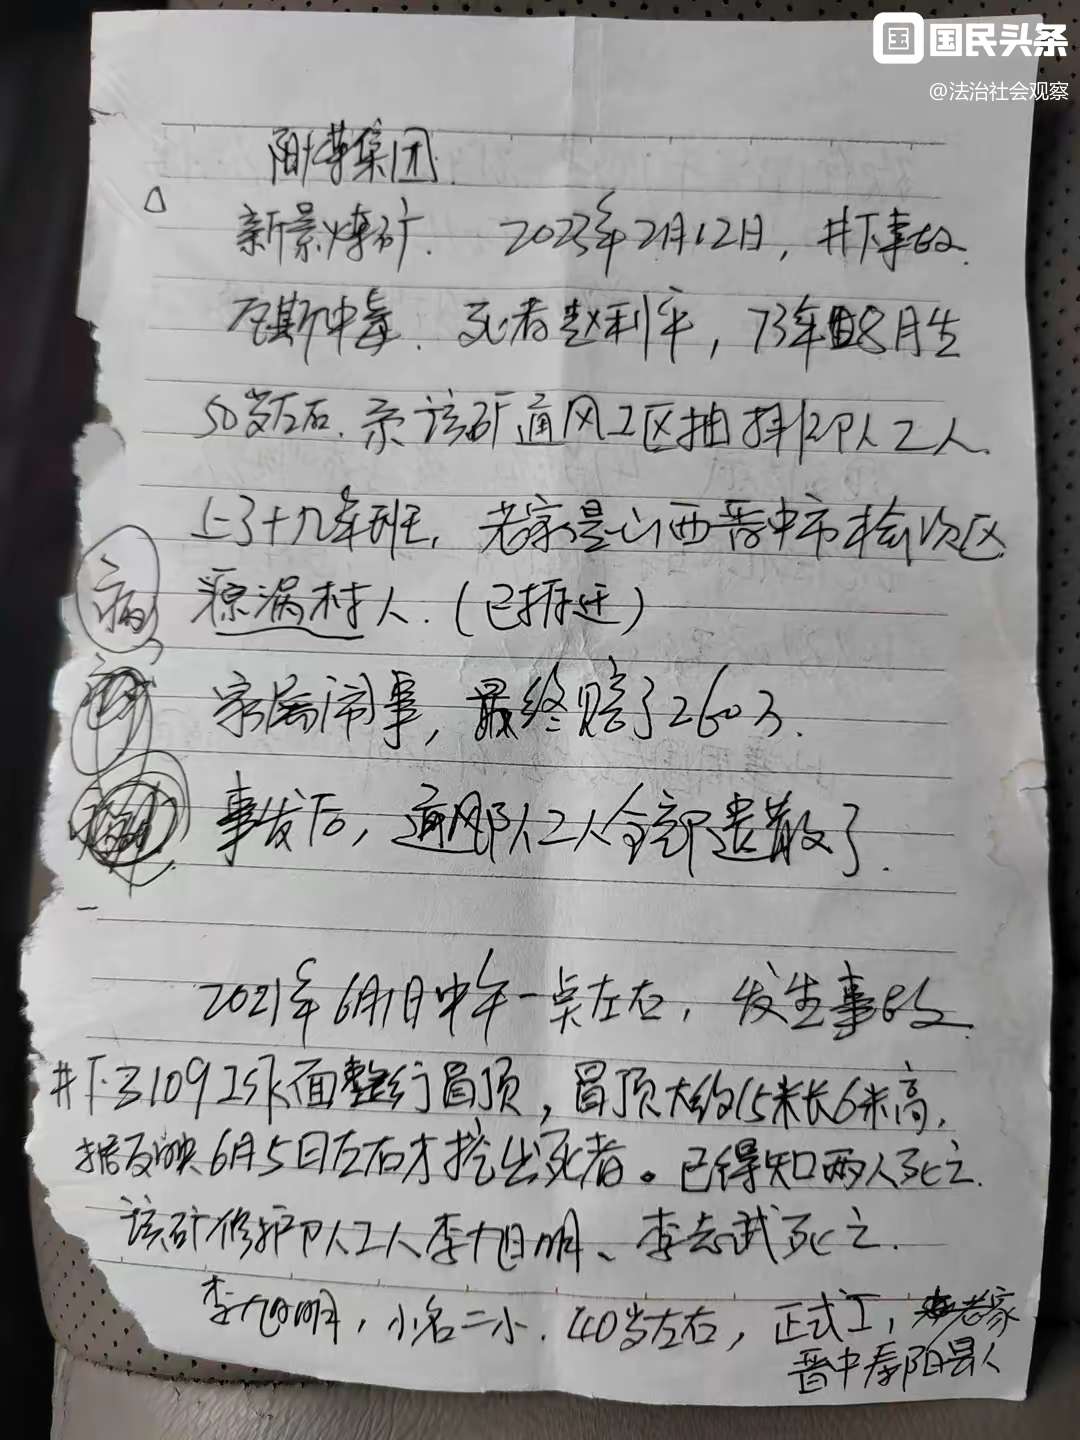 国 国民头条
@法治社会观察
阳煤集团.
△
新景煤矿. 2023年2月12日，井下事故.
瓦斯中毒. 死者赵利平，73年8月生
50岁左右. 系该矿通风工区抽排队人工人.
上了十九年班，老家是山西晋中市榆次区
源涡村人.（已拆迁）
病
家属闹事，最终赔了260万.
事发后，通风队工人全部遣散了.
2021年6月1日中午一点左右，发生事故.
井下3109工作面整行冒顶，冒顶大约15米长6米高，
据反映6月5日左右才挖出死者。已得知两人死亡.
该矿修护队工人李旭明、李志武死亡.
李旭明，小名二小. 40岁左右，正式工，老家
晋中寿阳县人